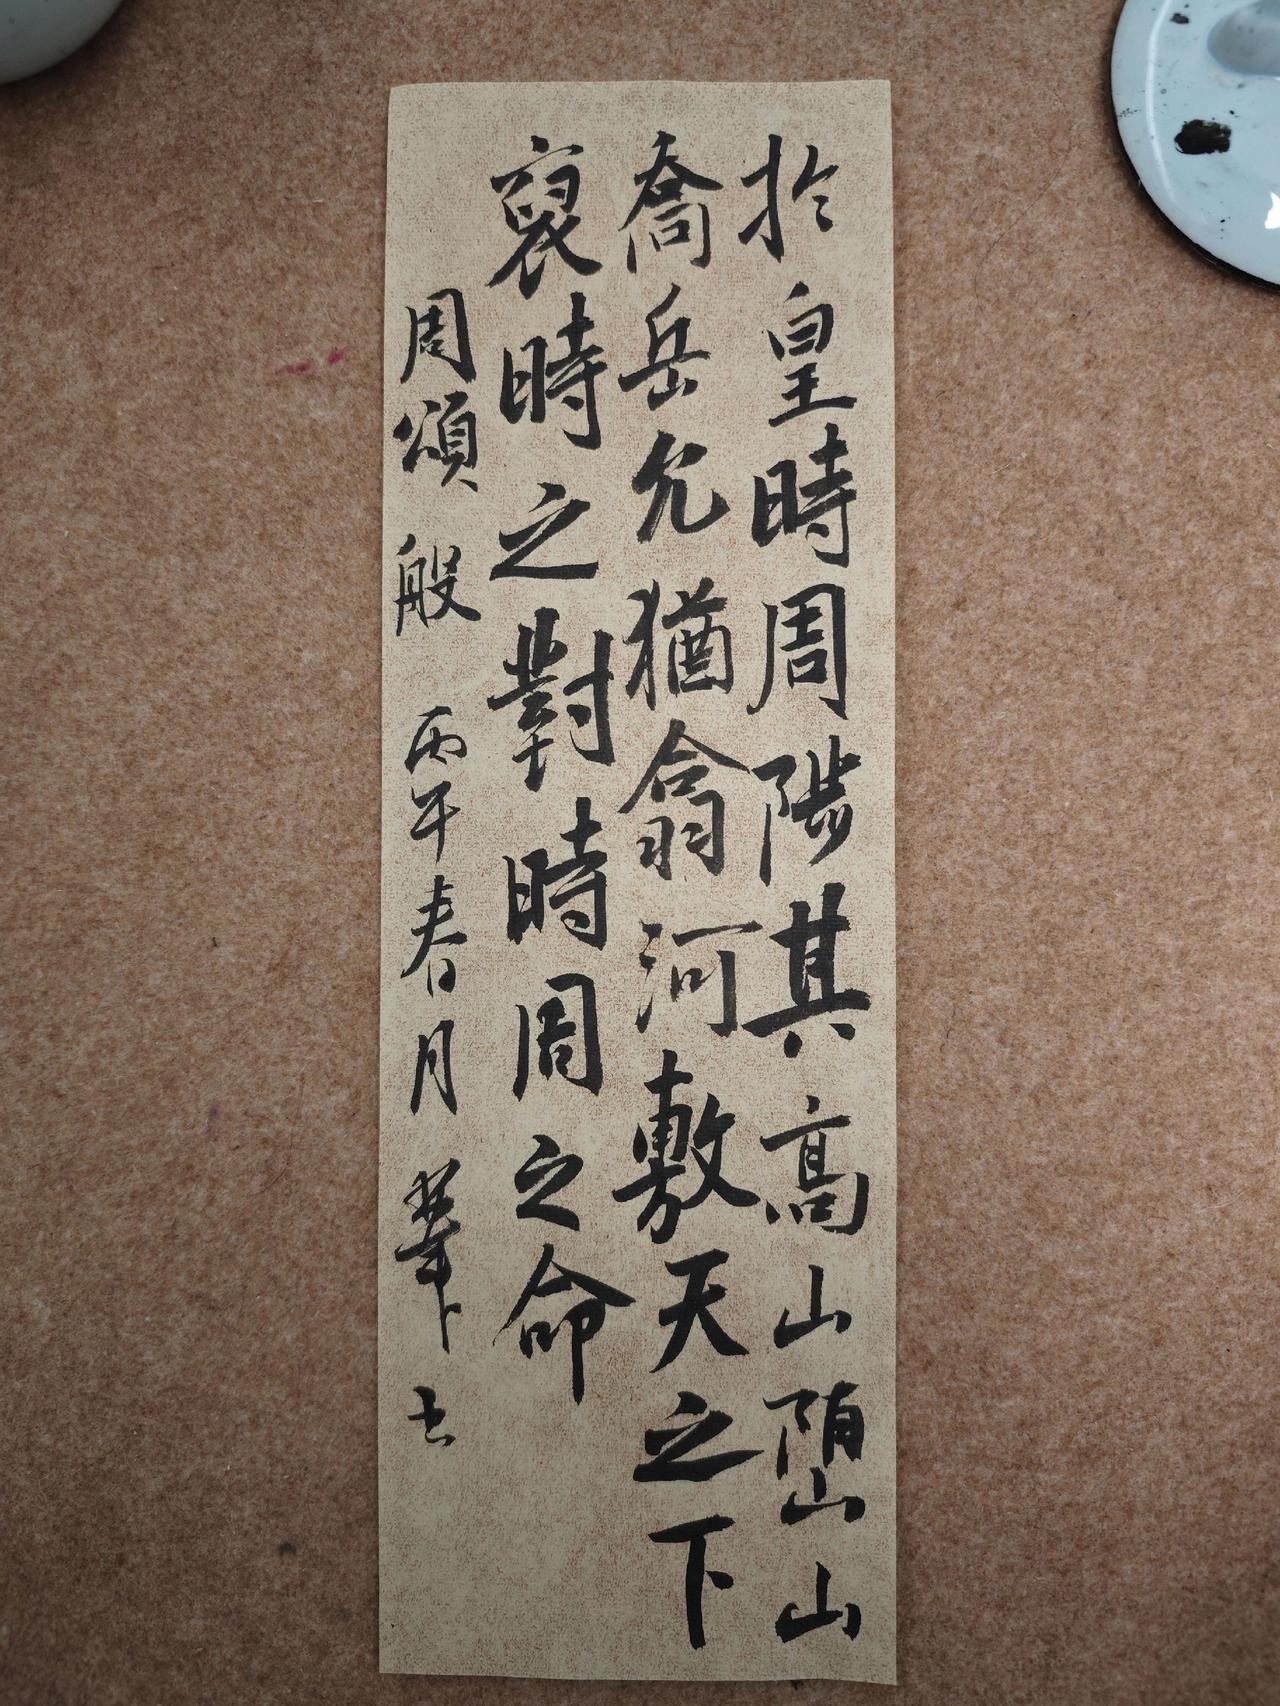 於皇時周陟其高山嶞山
喬岳允猶翕河敷天之下
裒時之對時周之命
周頌 般 丙午春月 肇土